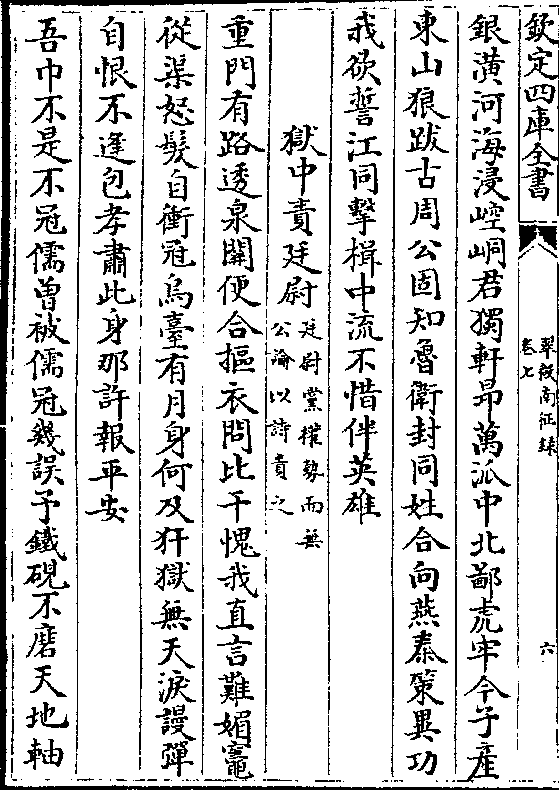 欽定四庫全書
翠微南征錄
卷七
六
銀潢河海浸崆峒君獨軒昂萬派中北鄙虎牢今子產
東山狼跋古周公固知魯衛封同姓合向燕秦策異功
我欲誓江同擊楫中流不惜伴英雄
獄中責廷尉
廷尉黨權勢而無
公論以詩責之
重門有路透泉關便合摳衣問比干愧我直言難媚竈
從渠怒髮自衝冠烏臺有月身何及犴獄無天淚謾彈
自恨不逢包孝肅此身那許報平安
吾巾不是不冠儒曾被儒冠幾誤予鐵硯不磨天地軸